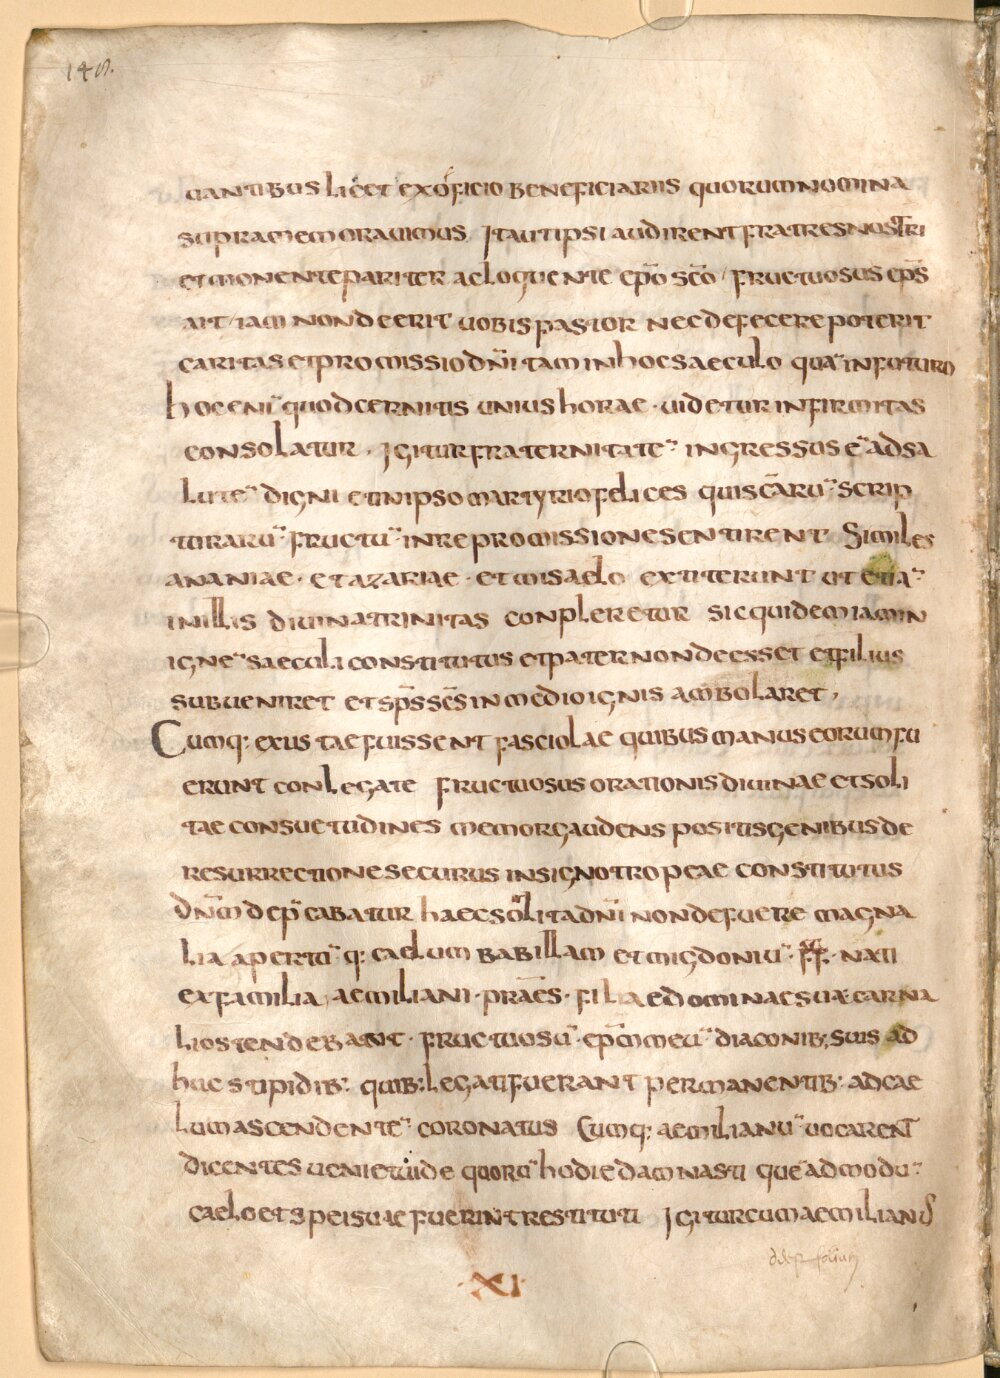 148.
uantibus licet ex officio beneficiariis quorum nomina
supra memorauimus Ita ut ipsi audirent fratres nostri
et monente pariter ac loquente ep̄o sc̄o fructuosus ep̄s
ait iam non deerit uobis pastor nec defecere poterit
caritas et promissio dn̄i tam in hoc saeculo quā in futuro
hoc enī quod cernitis unius horae · uidetur infirmitas
consolatur . Igitur fraternitatē ingressus ē ad sa
lutē digni et in ipso martyrio felices qui sc̄arū scrip
turarū fructū in repromissione sentirent Similes
ananiae · et azariae · et misaelo extiterunt ut etiā
in illis diuina trinitas conpleretur sic quidem iam in
ignē saeculi constitutus et pater non deesset et filius
subueniret et sp̄s sc̄s in medio ignis ambolaret ,
Cumq: exustae fuissent fasciolae quibus manus eorum fu
erunt conlegate fructuosus orationis diuinae et soli
tae consuetudines memor gaudens positis genibus de
resurrectione securus in signo tropeae constitutus
dn̄m dep̄cabatur haec solita dn̄i non defuere magna
lia apertū q: caelum babillam et migdoniū · ff · nati
ex familia aemiliani · praēs · filiae dominae suae carna
li ostendebant · fructuosū · ep̄m meū diaconib; suis ad
huc stipidib: quib: legati fuerant permanentib: ad cae
lum ascendentē coronatus Cumq: aemilianū uocarent
dicentes ueni et uide quorū hodie damnasti quē admodū
caelo et spei suae fuerint restituti Igitur cum aemilianus
· XI ·